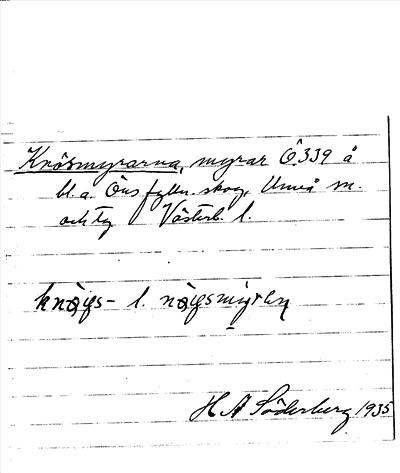 Knösmyrarna, myrar Ö.339 å
bl.a. Öns fyllu. skog, Umeå sn.
och tg Västerb. l.
knøys- l. nøysmyrɑɳ
H A Söderberg 1935